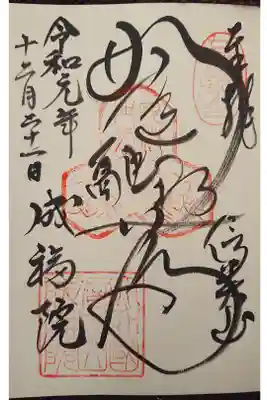 奉拝
信貴山
如意融通尊
令和元年
十二月二十一日
成福院